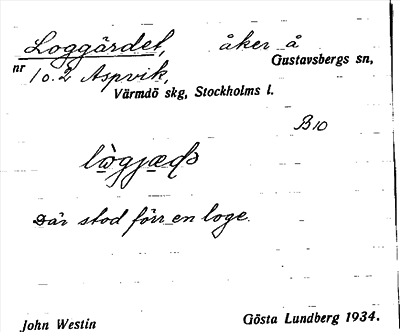 Loggärdet, åker å
Gustavsbergs sn,
nr 1 o. 2 Aspvik,
Värmdö skg, Stockholms l.
B10
där stod förr en loge.
John Westin Gösta Lundberg 1934.